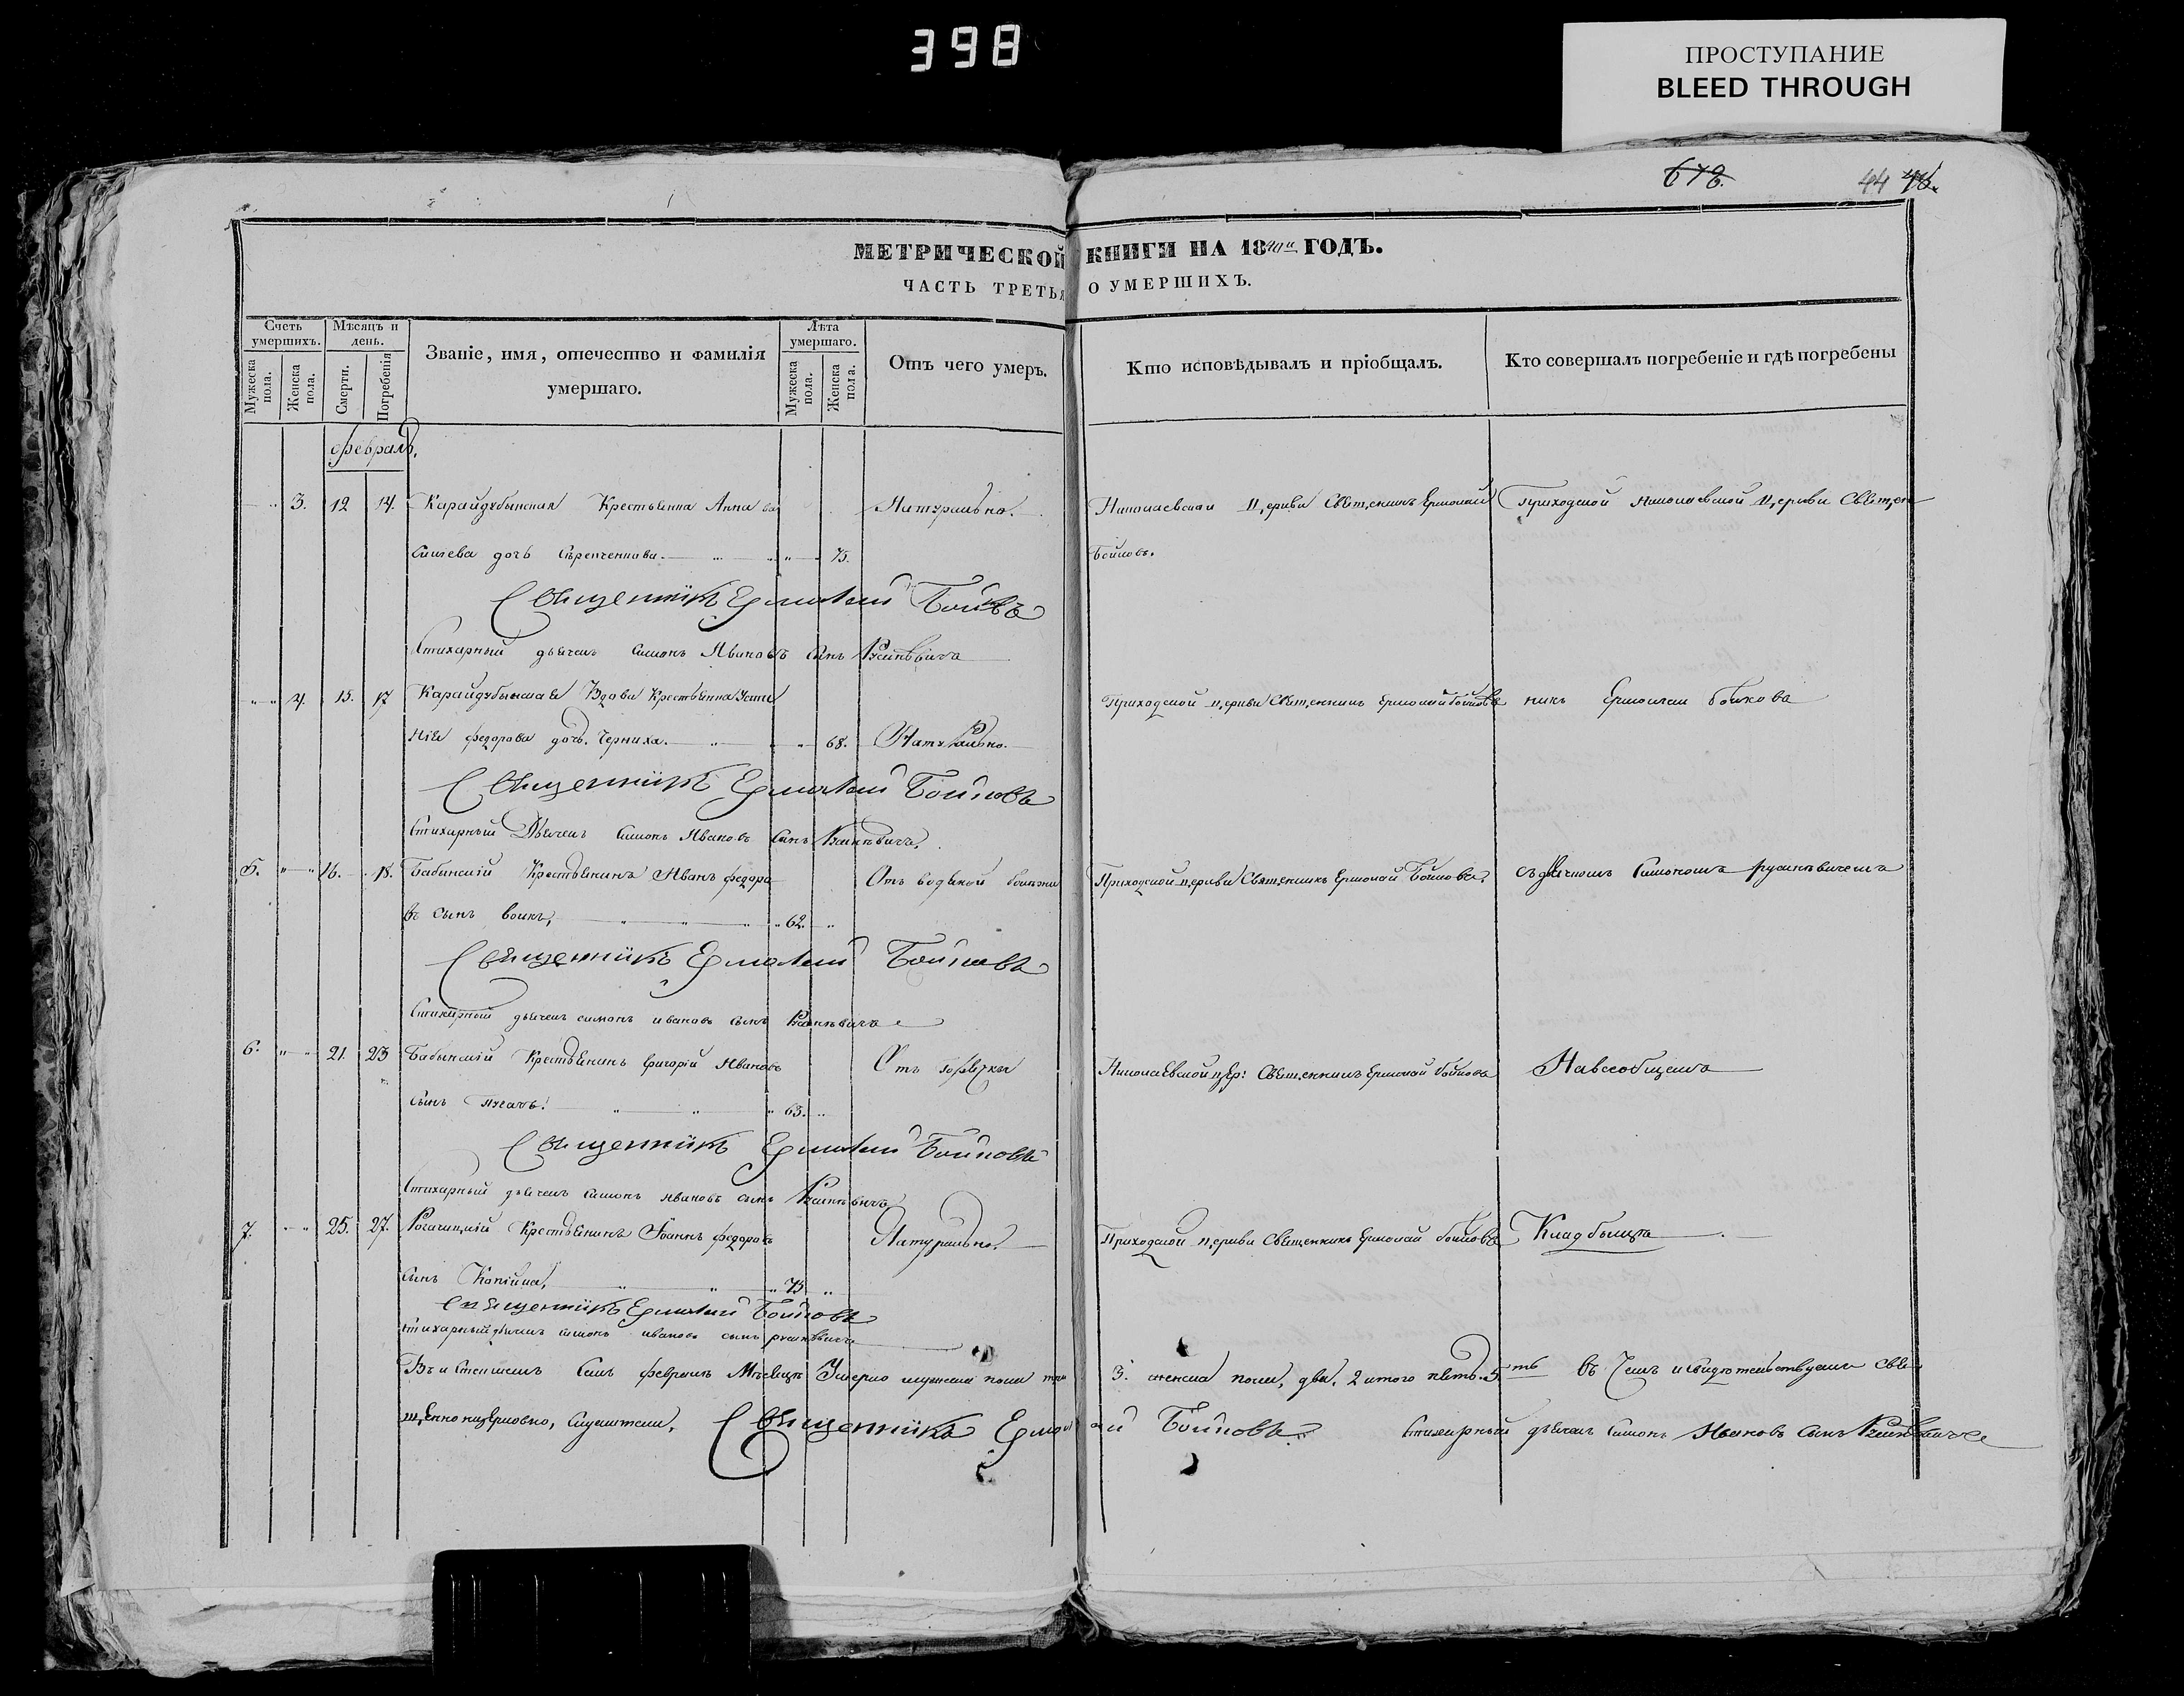 398
ПРОСТУПАНИЕ
BLEED THROUGH
678.
44
МЕТРИЧЕСКОЙ КНИГИ НА 1840й ГОДЪ.
ЧАСТЬ ТРЕТЬЯ О УМЕРШИХЪ.
Счетъ умершихъ.
Мужеска пола.
Женска пола.
Мѣсяцъ и день.
Смерти.
Погребенія
Званіе, имя, отечество и фамилія умершаго.
Лѣта умершаго.
Мужеска пола.
Женска пола.
Отъ чего умеръ.
Кто исповѣдывалъ и пріобщалъ.
Кто совершалъ погребеніе и гдѣ погребены
февраль.
3. 12 14. Карайдубынская Крестьянка Анна Натурально. Николаевской Церкви Священникъ Ермолай Приходской Николаевской Церкви Священ
дочь 75. Бойковъ.
Священникъ Ермолай Бойковъ
Стихарный дьячекъ Симонъ Ивановъ сынъ
4. 15. 17 Карайдубынская Вдова Крестьянка Усти Приходской церкви Священникъ Ермолай Бойковъ никъ Ермолай Бойковъ
нія федорова дочь Черниха. 68. Натурально.
Священникъ Ермолай Бойковъ
Стихарный Дьячекъ Симонъ Ивановъ Сынъ
5. 16. 18. Бабынскій Крестьянинъ Иванъ федоро Отъ водяной Приходской церкви Священникъ Ермолай Бойковъ. съ дьячкомъ Симономъ
въ сынъ вовкъ, 62.
Священникъ Ермолай Бойковъ
Стихарный дьячекъ симонъ ивановъ сынъ
6. 21. 23 Бабынскій Крестьянинъ Григорій Ивановъ Отъ горячки Николаевской цер: Священникъ Ермолай Бойковъ
сынъ 63.
Священникъ Ермолай Бойковъ
Стихарный дьячекъ Симонъ ивановъ сынъ
7. 25. 27. Рогачицкій Крестьянинъ Іоаннъ федоровъ Натурально. Приходской церкви Священникъ Ермолай Бойковъ Кладбыще
сынъ 75
Священникъ Ермолай Бойковъ
стихарный дьячекъ симонъ ивановъ сынъ
Въ семъ февралѣ Мѣсяцѣ Умерло мужеска пола три 3. женска пола, два. 2 итого пять. 5ть въ Чемъ и свидѣтельствуемъ Свя
Священникъ Ермолай Бойковъ Стихарный дьячекъ Симонъ Ивановъ Сынъ